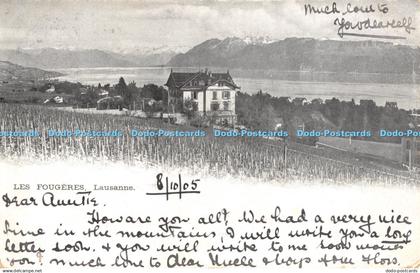 Much love to
Yourdearself
Dodo-Postcards Dodo-Postcards Dodo-Postcards Dodo-Postcards Dodo-Postcards
LES FOUGÈRES, Lausanne.
8/10/05
Dear Auntie.
How are you all? We had a very nice
time in the mountains, I will write you a long
letter soon, & you will write to me soon wont
much love to Dear Uncle & boys from Flors.
www.delcampe.net